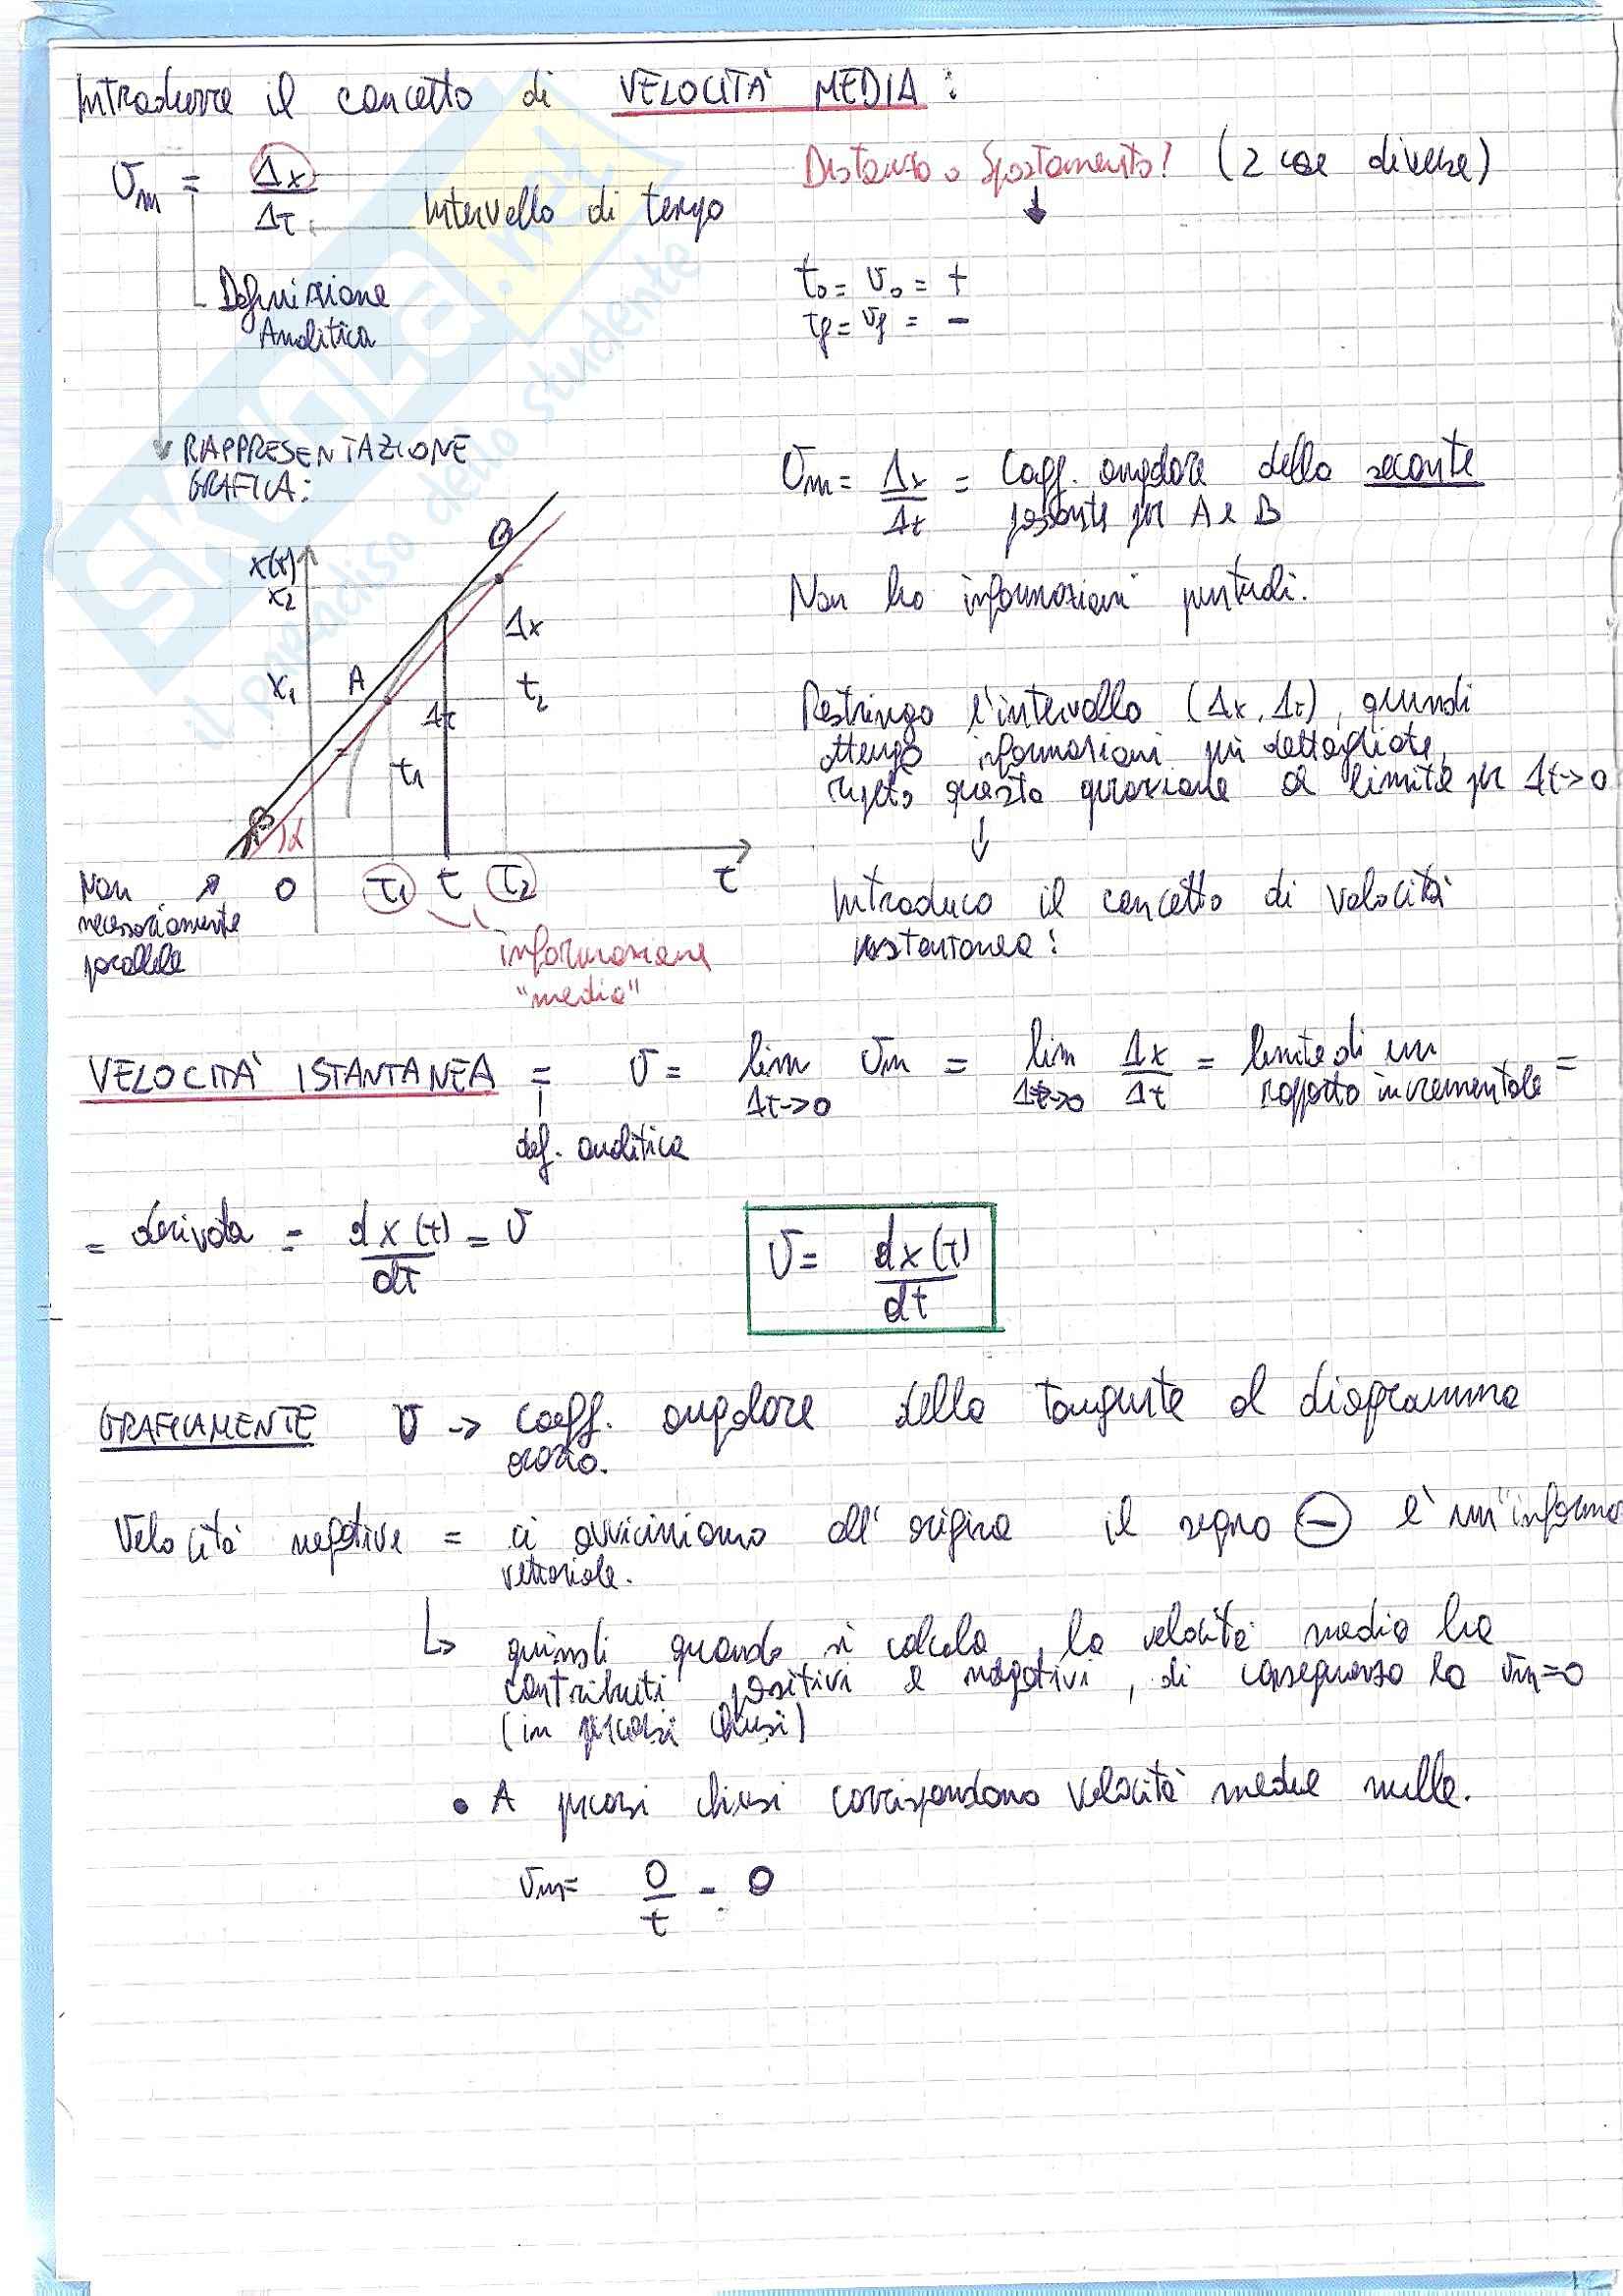 Introdurre il concetto di VELOCITÀ MEDIA:
Vm = Δx / Δt
Intervallo di tempo
Distanza o Spostamento? (2 cose diverse)
Definizione
Analitica
t0 = v0 = +
tf = vf = -
RAPPRESENTAZIONE
GRAFICA:
x(t)
x2
x1
A
B
Δx
t2
Δt
t1
α
O
t1
t
t2
t
Non
necessariamente
parallele
informazione
"media"
Vm = Δx / Δt = Coeff. angolare della secante
passante per A e B
Non ho informazioni puntuali.
Restringo l'intervallo (Δx, Δt), quindi
ottengo informazioni più dettagliate,
ripeto questa operazione al limite per Δt->0
Introduco il concetto di velocità
istantanea:
VELOCITÀ ISTANTANEA = v = lim Δt->0 vm = lim Δt->0 Δx / Δt = limite di un
rapporto incrementale =
def. analitica
= derivata = dx(t) / dt = v
v = dx(t) / dt
GRAFICAMENTE v -> coeff. angolare della tangente al diagramma
orario.
Velocità negative = ci avviciniamo all'origine il segno - è un'informa
vettoriale.
quindi quando si calcola, la velocità media ha
contributi positivi e negativi, di conseguenza la vm=0
(in percorsi chiusi)
• A percorsi chiusi corrispondono velocità medie nulle.
vm = 0 / t = 0
SKUOLA.net
il paradiso dello studente